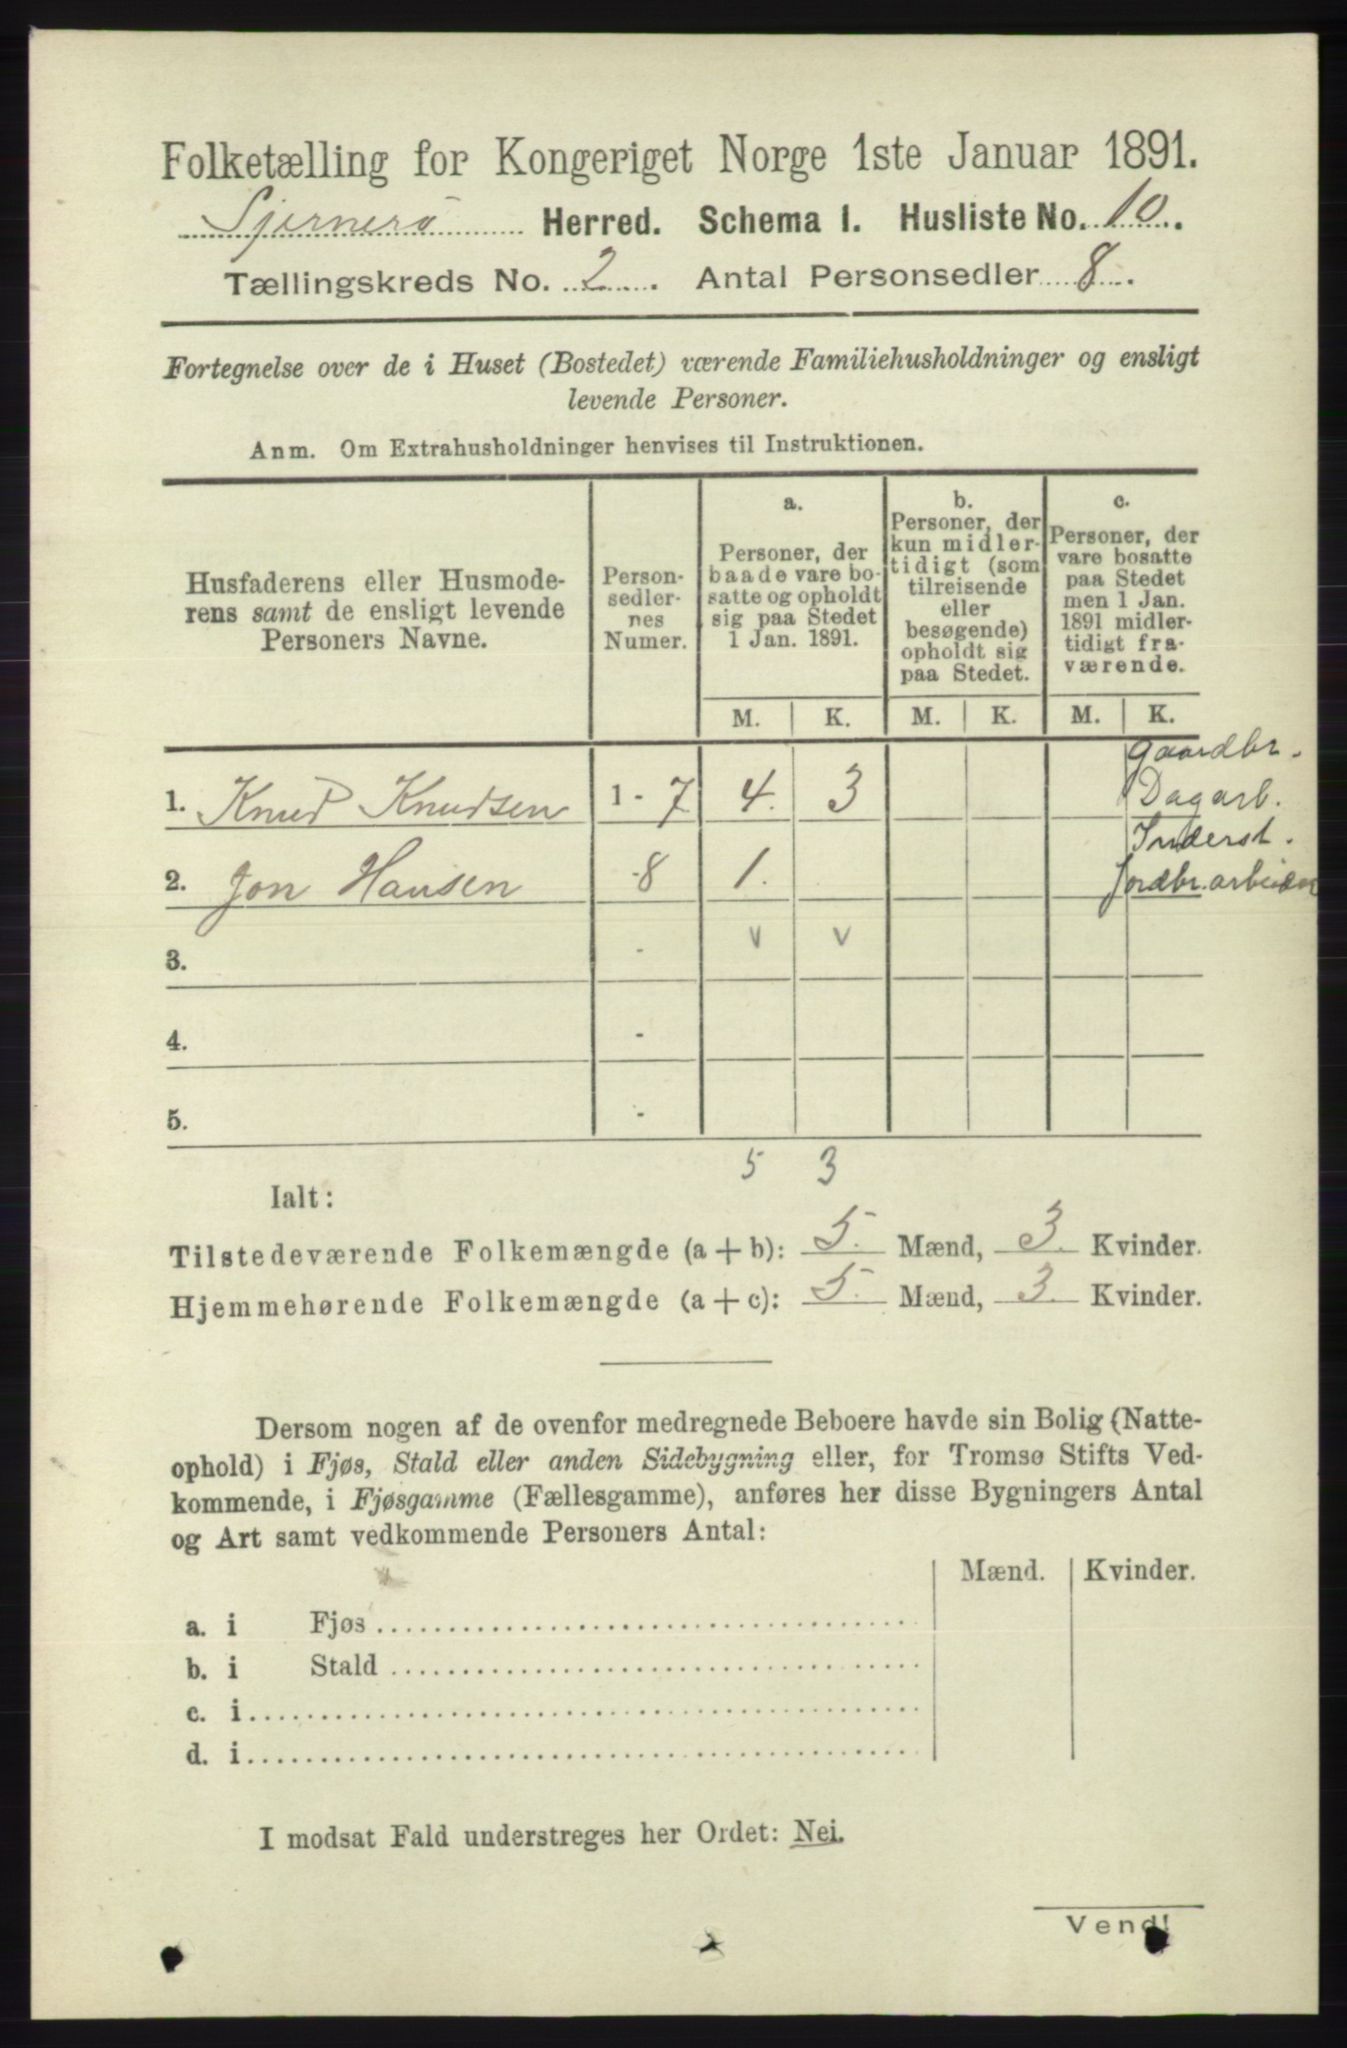 Folketælling for Kongeriget Norge 1ste Januar 1891.
Sjernerö Herred. Schema 1. Husliste No. 10.
Tællingskreds No. 2. Antal Personsedler 8.
Fortegnelse over de i Huset (Bostedet) værende Familiehusholdninger og ensligt
levende Personer.
Anm. Om Extrahusholdninger henvises til Instruktionen.
Husfaderens eller Husmode-
rens samt de ensligt levende
Personers Navne.
Person-
sedler-
nes
Numer.
a.
Personer, der
baade vare bo-
satte og opholdt
sig paa Stedet
1 Jan. 1891.
b.
Personer, der
kun midler-
tidigt (som
tilreisende
eller
besøgende)
opholdt sig
paa Stedet.
c.
Personer, der
vare bosatte
paa Stedet
men 1 Jan.
1891 midler-
tidigt fra-
værende.
M. K. M. K. M. K.
Gaardbr.
1. Knud Knudsen 1 - 7 4. 3 Dagarb.
Inderst.
2. Jon Hansen -8 1. Jordbr.arbeider
3. - v v
4. -
5. -
5 3
Ialt:
Tilstedeværende Folkemængde (a + b): 5. Mænd, 3. Kvinder.
Hjemmehørende Folkemængde (a + c): 5. Mænd, 3. Kvinder.
Dersom nogen af de ovenfor medregnede Beboere havde sin Bolig (Natte-
ophold) i Fjøs, Stald eller anden Sidebygning eller, for Tromsø Stifts Ved-
kommende, i Fjøsgamme (Fællesgamme), anføres her disse Bygningers Antal
og Art samt vedkommende Personers Antal:
Mænd. Kvinder.
a. i Fjøs
b. i Stald
c. i
d. i
I modsat Fald understreges her Ordet: Nei.
Vend!